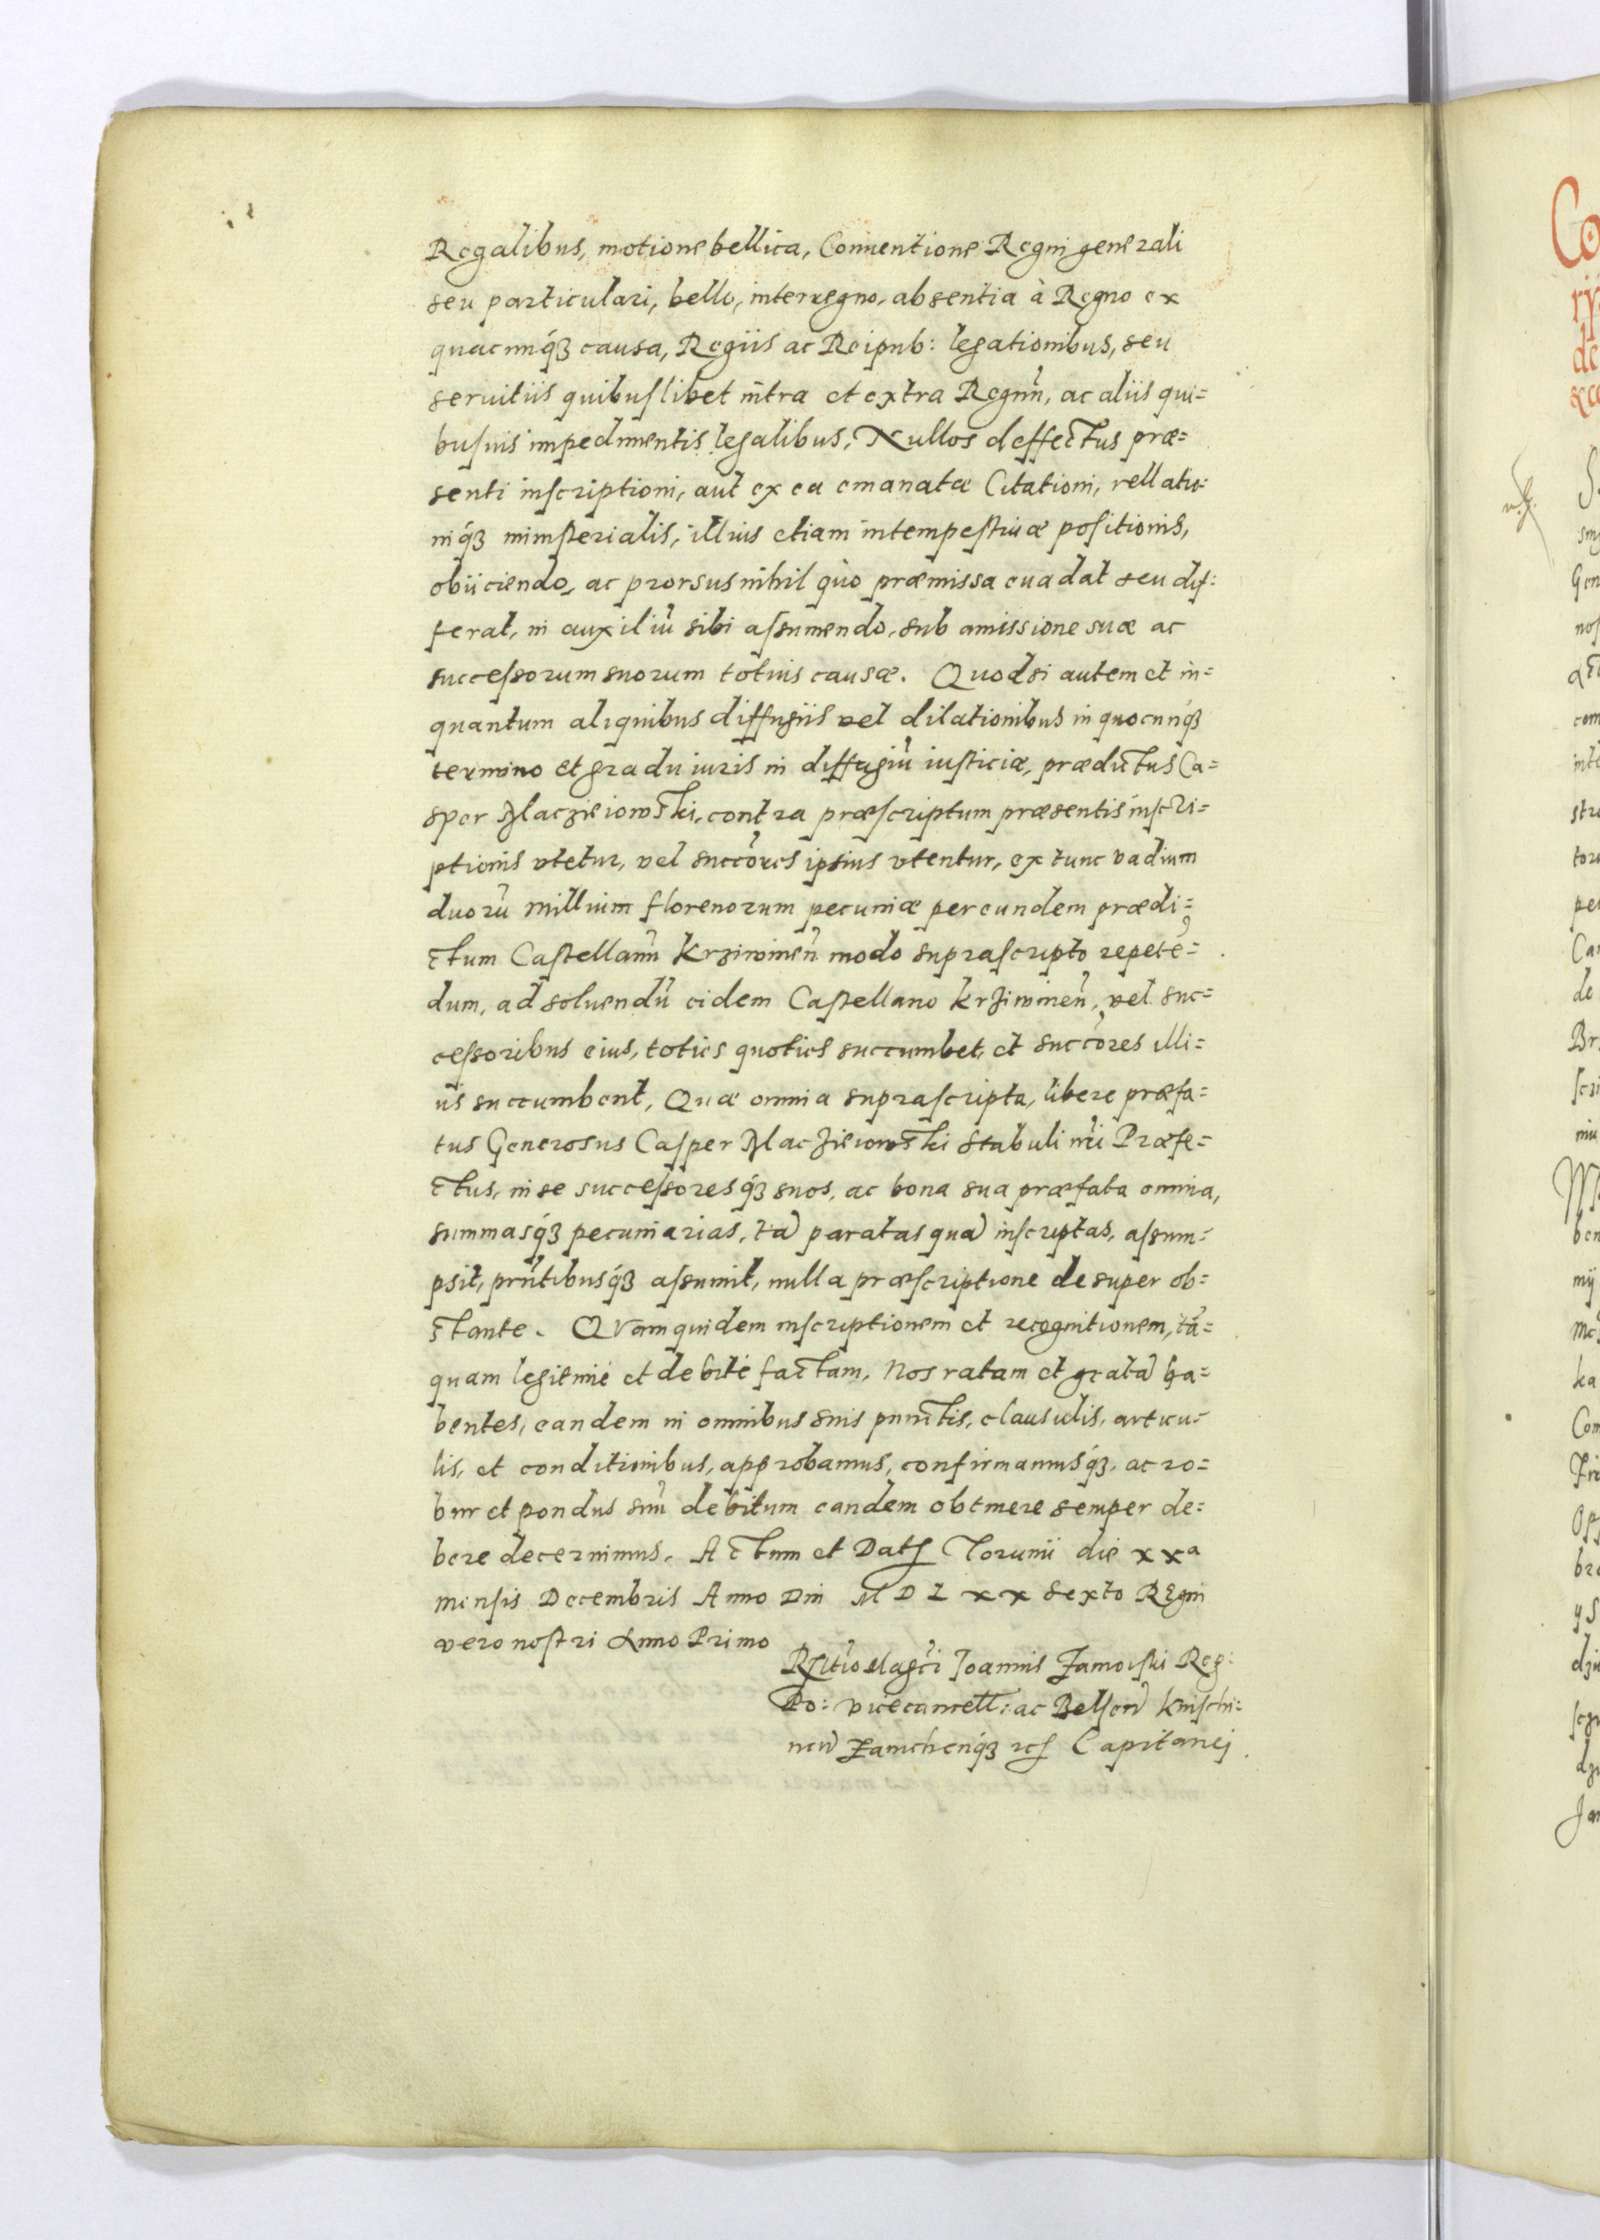 Regalibus, motione bellica, Conuentione Regni generali
seu particulari, bello, interregno, absentia à Regno ex
quacunq́ꝫ causa, Regiis ac Reipub: legationibus, seu
seruitiis quibuslibet intra et extra Regnũ, ac aliis qui=
busuis impedimentis legalibus, Nullos deffectus præ=
senti inscriptioni, aut ex ea emanatæ Citationi, rellatio=
niq́ꝫ ministerialis, illius etiam intempestiuæ positionis,
obiiciendo, ac prorsus nihil quo præmissa euadat seu dif=
ferat, in auxiliũ sibi assumendo, sub amissione suæ ac
successorum suorum totius causæ. Quodsi autem et in=
quantum aliquibus diffugiis vel dilationibus in quocunq́ꝫ
termino et gradu iuris in diffugiũ iusticiæ, prædictus Ca=
sper Maczieiowski, contra præscriptum præsentis inscri=
ptionis vtetur, vel succores ipsius vtentur, ex tunc vadium
duorũ millium florenorum pecuniæ per eundem prædi=
ctum Castellanũ Krziwineñ modo suprascripto repetẽ=
dum, ad soluendũ eidem Castellano Krziwineñ, vel suc=
cessoribus eius, toties quoties succumbet, et succores illi=
us succumbent, Quæ omnia suprascripta, libere præfa=
tus Generosus Casper Maczieiowski Stabuli nr̃i Præfe=
ctus, in se successoresq́ꝫ suos, ac bona sua præfata omnia,
summasq́ꝫ pecuniarias, tã paratas quã inscriptas, assum=
psit, prñtibusq́ꝫ assumit, nulla præscriptione desuper ob=
stante. Quam quidem inscriptionem et recognitionem, tã=
quam legitimè et debitè factam, Nos ratam et gratã ha=
bentes, eandem in omnibus suis punctis, clausulis, articu=
lis, et conditionibus, approbamus, confirmamusq́ꝫ, ac ro=
bur et pondus suũ debitum eandem obtinere semper de=
bere decernimus. Actum et Datʃ Torunii die xxa
mensis Decembris Anno Dni M D L xx Sexto Regni
vero nostri Anno Primo
Rel̃tio Mag̃ci Joannis Zamoiski Reg:
Po: vicecancell: ac Belseñ Knischi=
neñ Zamcheñq́ꝫ rcʃ Capitanei